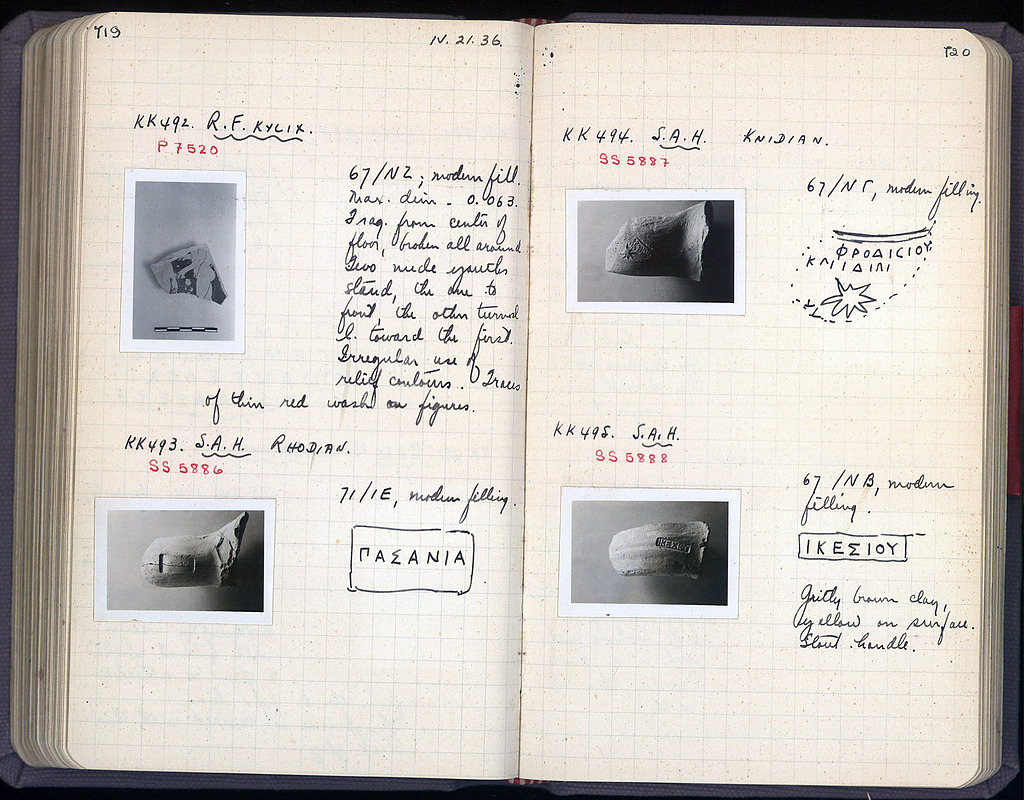 719
IV. 21. 36.
KK492. R.F. KYLIX.
P 7520
67/NZ; modern fill.
Max. dim. - 0.063.
Frag. from center of
floor, broken all around
Two nude youths
stand, the one to
front, the other turned
l. toward the first.
Irregular use of
relief contours. Traces
of thin red wash on figures.
KK493. S.A.H. RHODIAN.
SS 5886
71/ΙΕ, modern filling.
ΠΑΣΑΝΙΑ
720
KK494. S.A.H. KNIDIAN.
SS 5887
67/ΝΓ, modern filling.
ΦΡΟΔΙΣΙΟΥ
ΚΝΙΔΙΝΙ
KK495. S.A.H.
SS 5888
67/ΝΒ, modern
filling.
ΙΚΕΣΙΟΥ
Gritty brown clay,
yellow on surface.
Stout handle.
ΙΚΕΣΙΟΥ